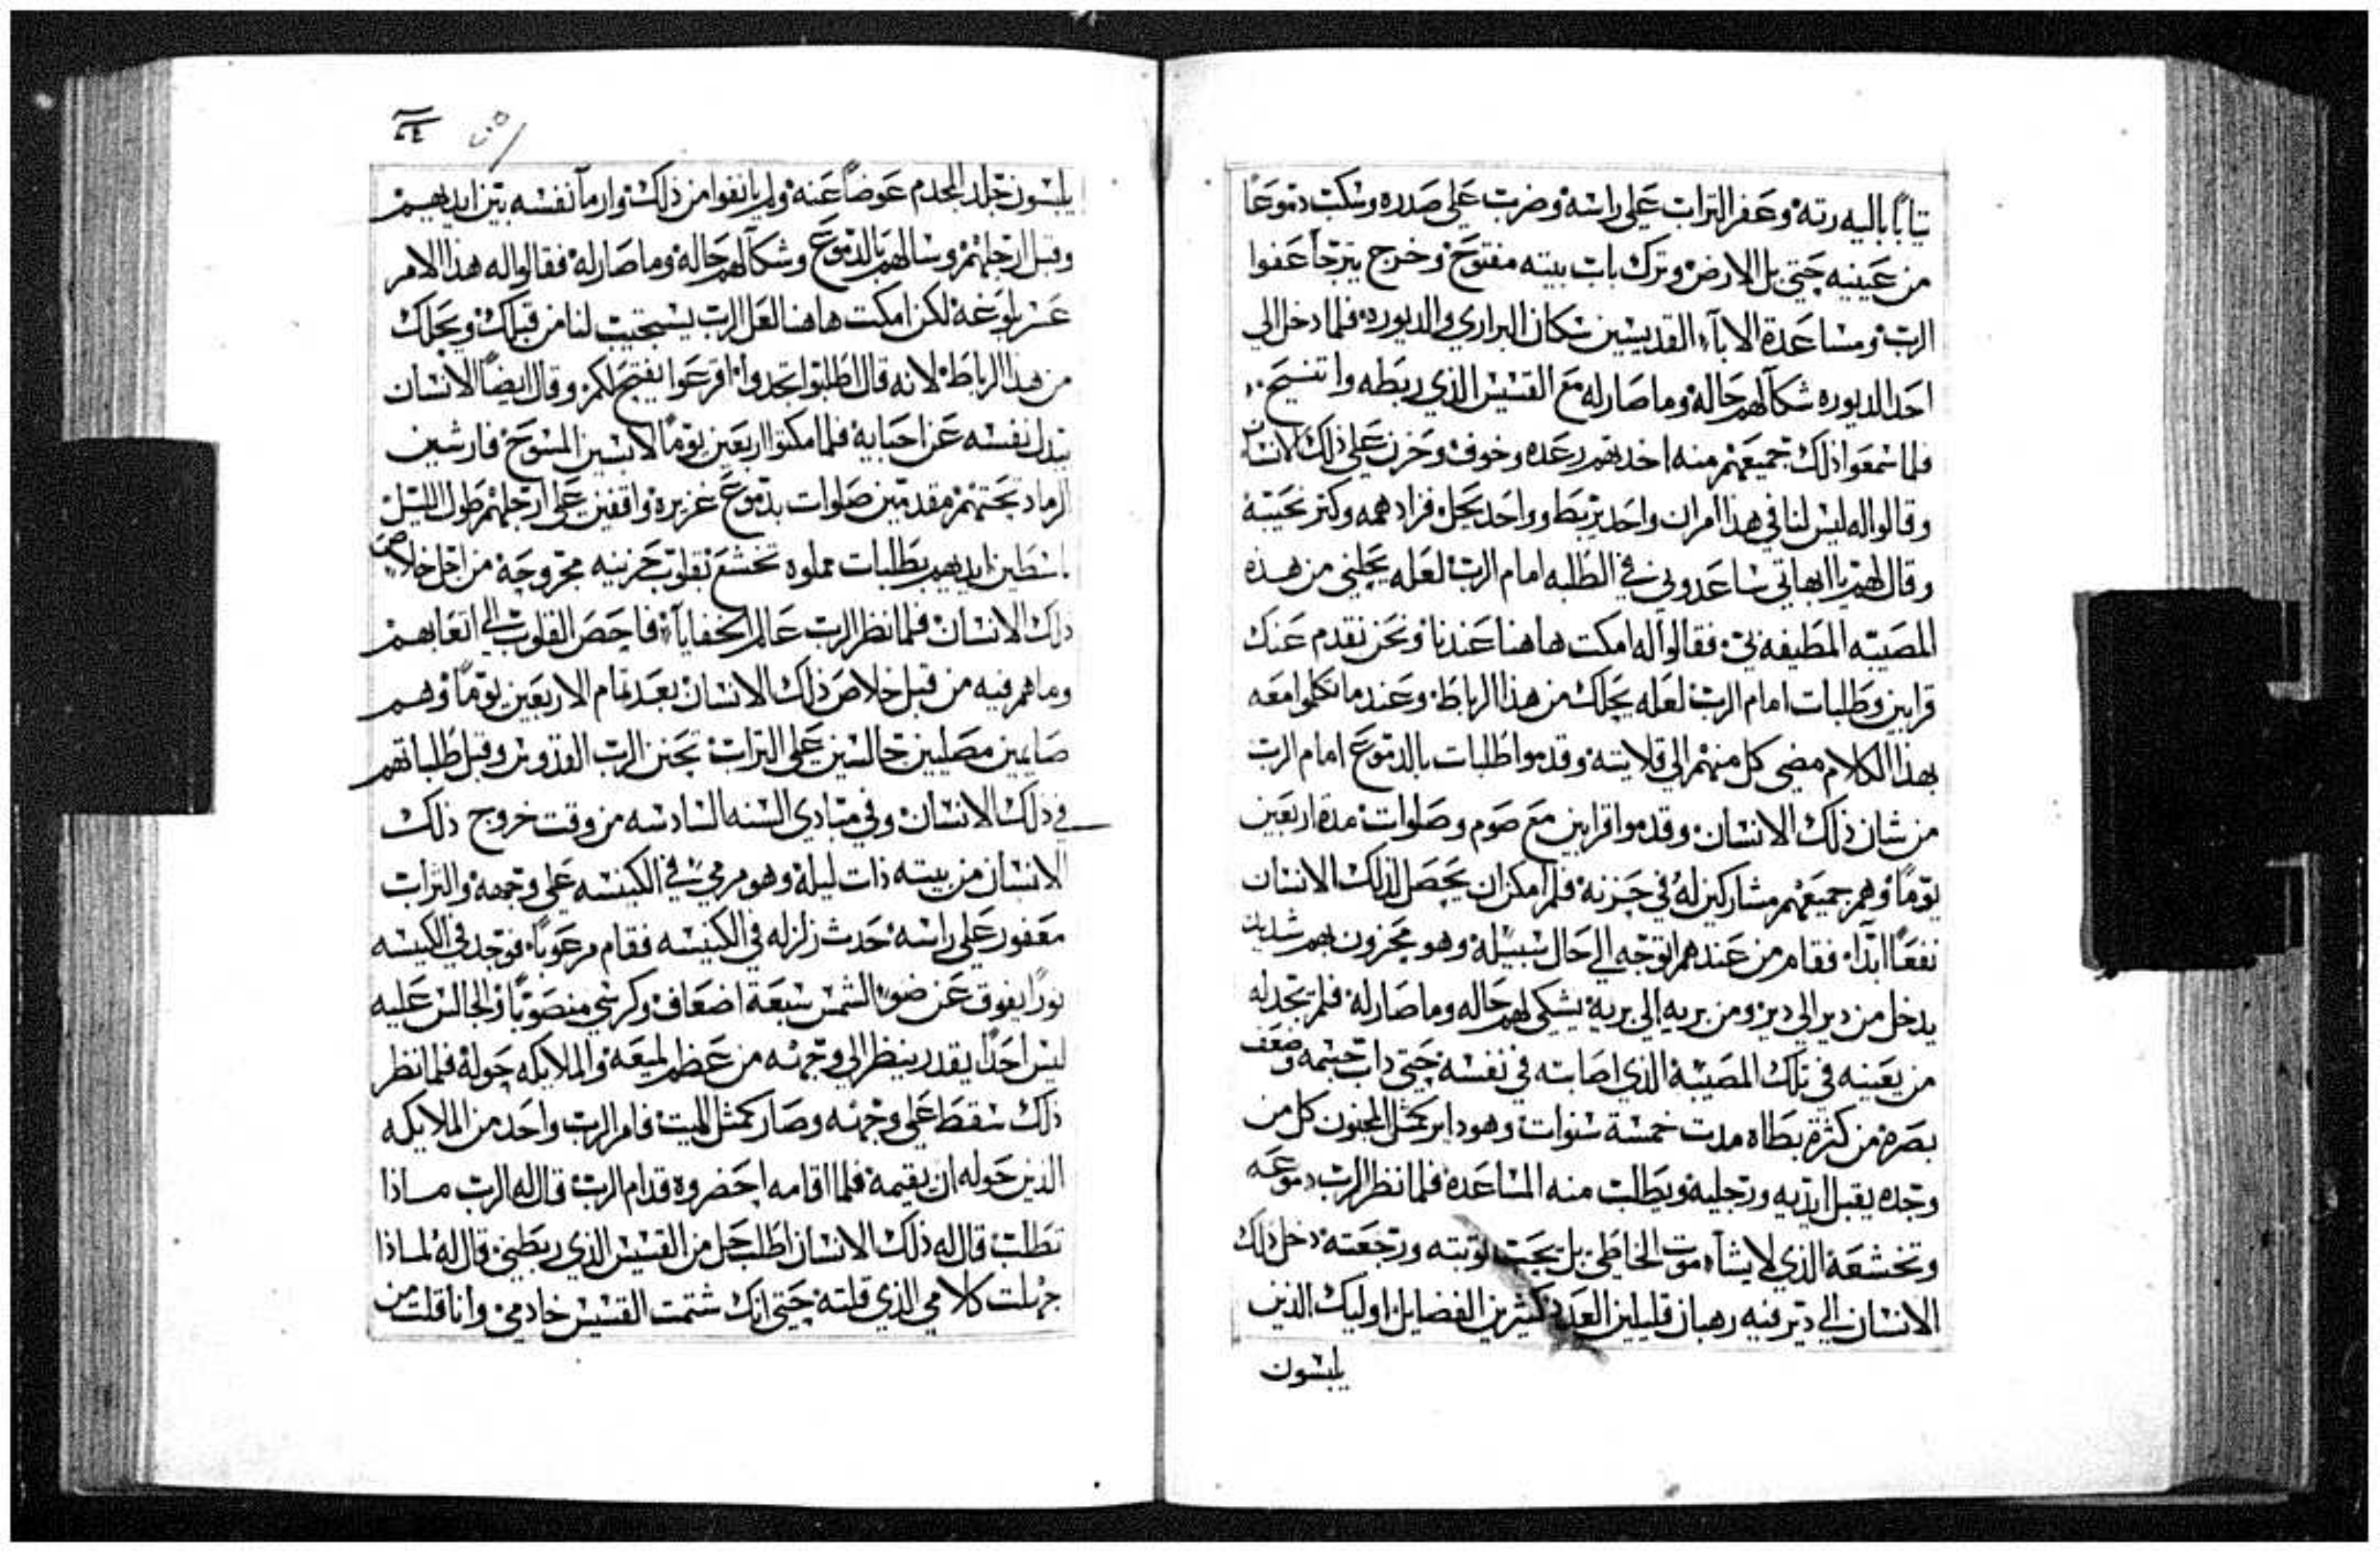 تيابا باليه رته وعفر التراب على راسه وضرب على صدره وسكب دموعا
من عينيه حتى بل الارض وترك باب بيته مفتوح وخرج يترجا عفوا
الرب ومساعدة الاباء القديسين سكان البراري والديوره فلما دخل الى
احد الديوره شكا لهم حاله وما صار له مع القسيس الذي ربطه واتنسيح
فلما سمعوا ذلك جميعهم منه اخدتهم رعده وخوف وحزن على ذلك الانسان
وقالوا له ليس لنا في هذا امر ان واحد يربط وواحد يحل فزاد همه وكتر نحيبه
وقال لهم يا ابهاتي ساعدوني في الطلبه امام الرب لعله يحلني من هذه
المصيبه المطيفه بي فقالوا له امكت هاهنا عندنا ونحن نقدم عنك
قرابين وطلبات امام الرب لعله يحلك من هذا الرباط وعند ما تكلموا معه
بهذا الكلام مضى كل منهم الى قلايته وقدموا طلبات بالدموع امام الرب
من شان ذلك الانسان وقدموا قرابين مع صوم وصلوات مدة اربعين
يوما وهم جميعهم مشاركين له في حزنه فلم امكن ان يحصل لذلك الانسان
نفعا ابدا فقام من عندهم اتوجه الى حال سبيله وهو محزون بهم شديد
يدخل من دير الى دير ومن بريه الى بريه يشكي لهم حاله وما صار له فلم تجد له
من يعينه في تلك المصيبة الذي اصابته في نفسه حتى داب جسمه وضعف
بصره من كثرة بطاه مدت خمسة سنوات وهو داير كمثل المجنون كل من
وجده يقبل ايديه ورجليه ويطلب منه المساعده فلما نظر الرب دموعه
وتخشعه الذي لا يشاء موت الخاطي بل يحب توبته ورجعته دخل ذلك
الانسان الى دير فيه رهبان قليلين العدد كثيرين الفضايل اوليك الذين
يلبسون
يلبسون جلد المجدم عوضا عنه ولم يانفوا من ذلك وارما نفسه بين ايديهم
وقبل ارجلهم وسالهم بالدموع وشكا لهم حاله وما صار له فقالوا له هذا الامر
عسر بلوغه لكن امكت هاهنا لعل الرب يستجيب لنا من قبلك ويحلك
من هذا الرباط لانه قال اطلبوا تجدوا اقرعوا يفتح لكم وقال ايضا الانسان
يبدل نفسه عن احبابه فلما مكتوا اربعين يوما لابسين المسوح فارشين
الرماد تحتهم مقدمين صلوات بدموع غزيره واقفين على ارجلهم طول الليل
باسطين ايديهم بطلبات مملوه تخشع بقلوب حزينه مجروحة من اجل خلاص
ذلك الانسان فلما نظر الرب عالم الخفايا فاحص القلوب الى اتعابهم
وما هم فيه من قبل خلاص ذلك الانسان بعد تمام الاربعين يوما وهم
صايمين مصليين جالسين على التراب تحنن الرب القدوس وقبل طلباتهم
في ذلك الانسان وفي مبادي السنه السادسه من وقت خروج ذلك
الانسان من بيته ذات ليله وهو مرمي في الكنيسه على وجهه والتراب
معفور على راسه حدث زلزله في الكنيسه فقام مرعوبا فوجد في الكنيسه
نورا يفوق عن ضوء الشمس سبعة اضعاف وكرسي منصوبا والجالس عليه
ليس احدا يقدر ينظر الى وجهه من عظم لميعه والملايكه حوله فلما نظر
ذلك سقط على وجهه وصار كمثل الميت فامر الرب واحد من الملايكه
الذين حوله ان يقيمه فلما اقامه احضروه قدام الرب قال له الرب ماذا
تطلب قال له ذلك الانسان اطلب حل من القسيس الذي ربطني قال له لماذا
جهلت كلامي الذي قلته حتى انك شتمت القسيس خادمي وانا قلت من